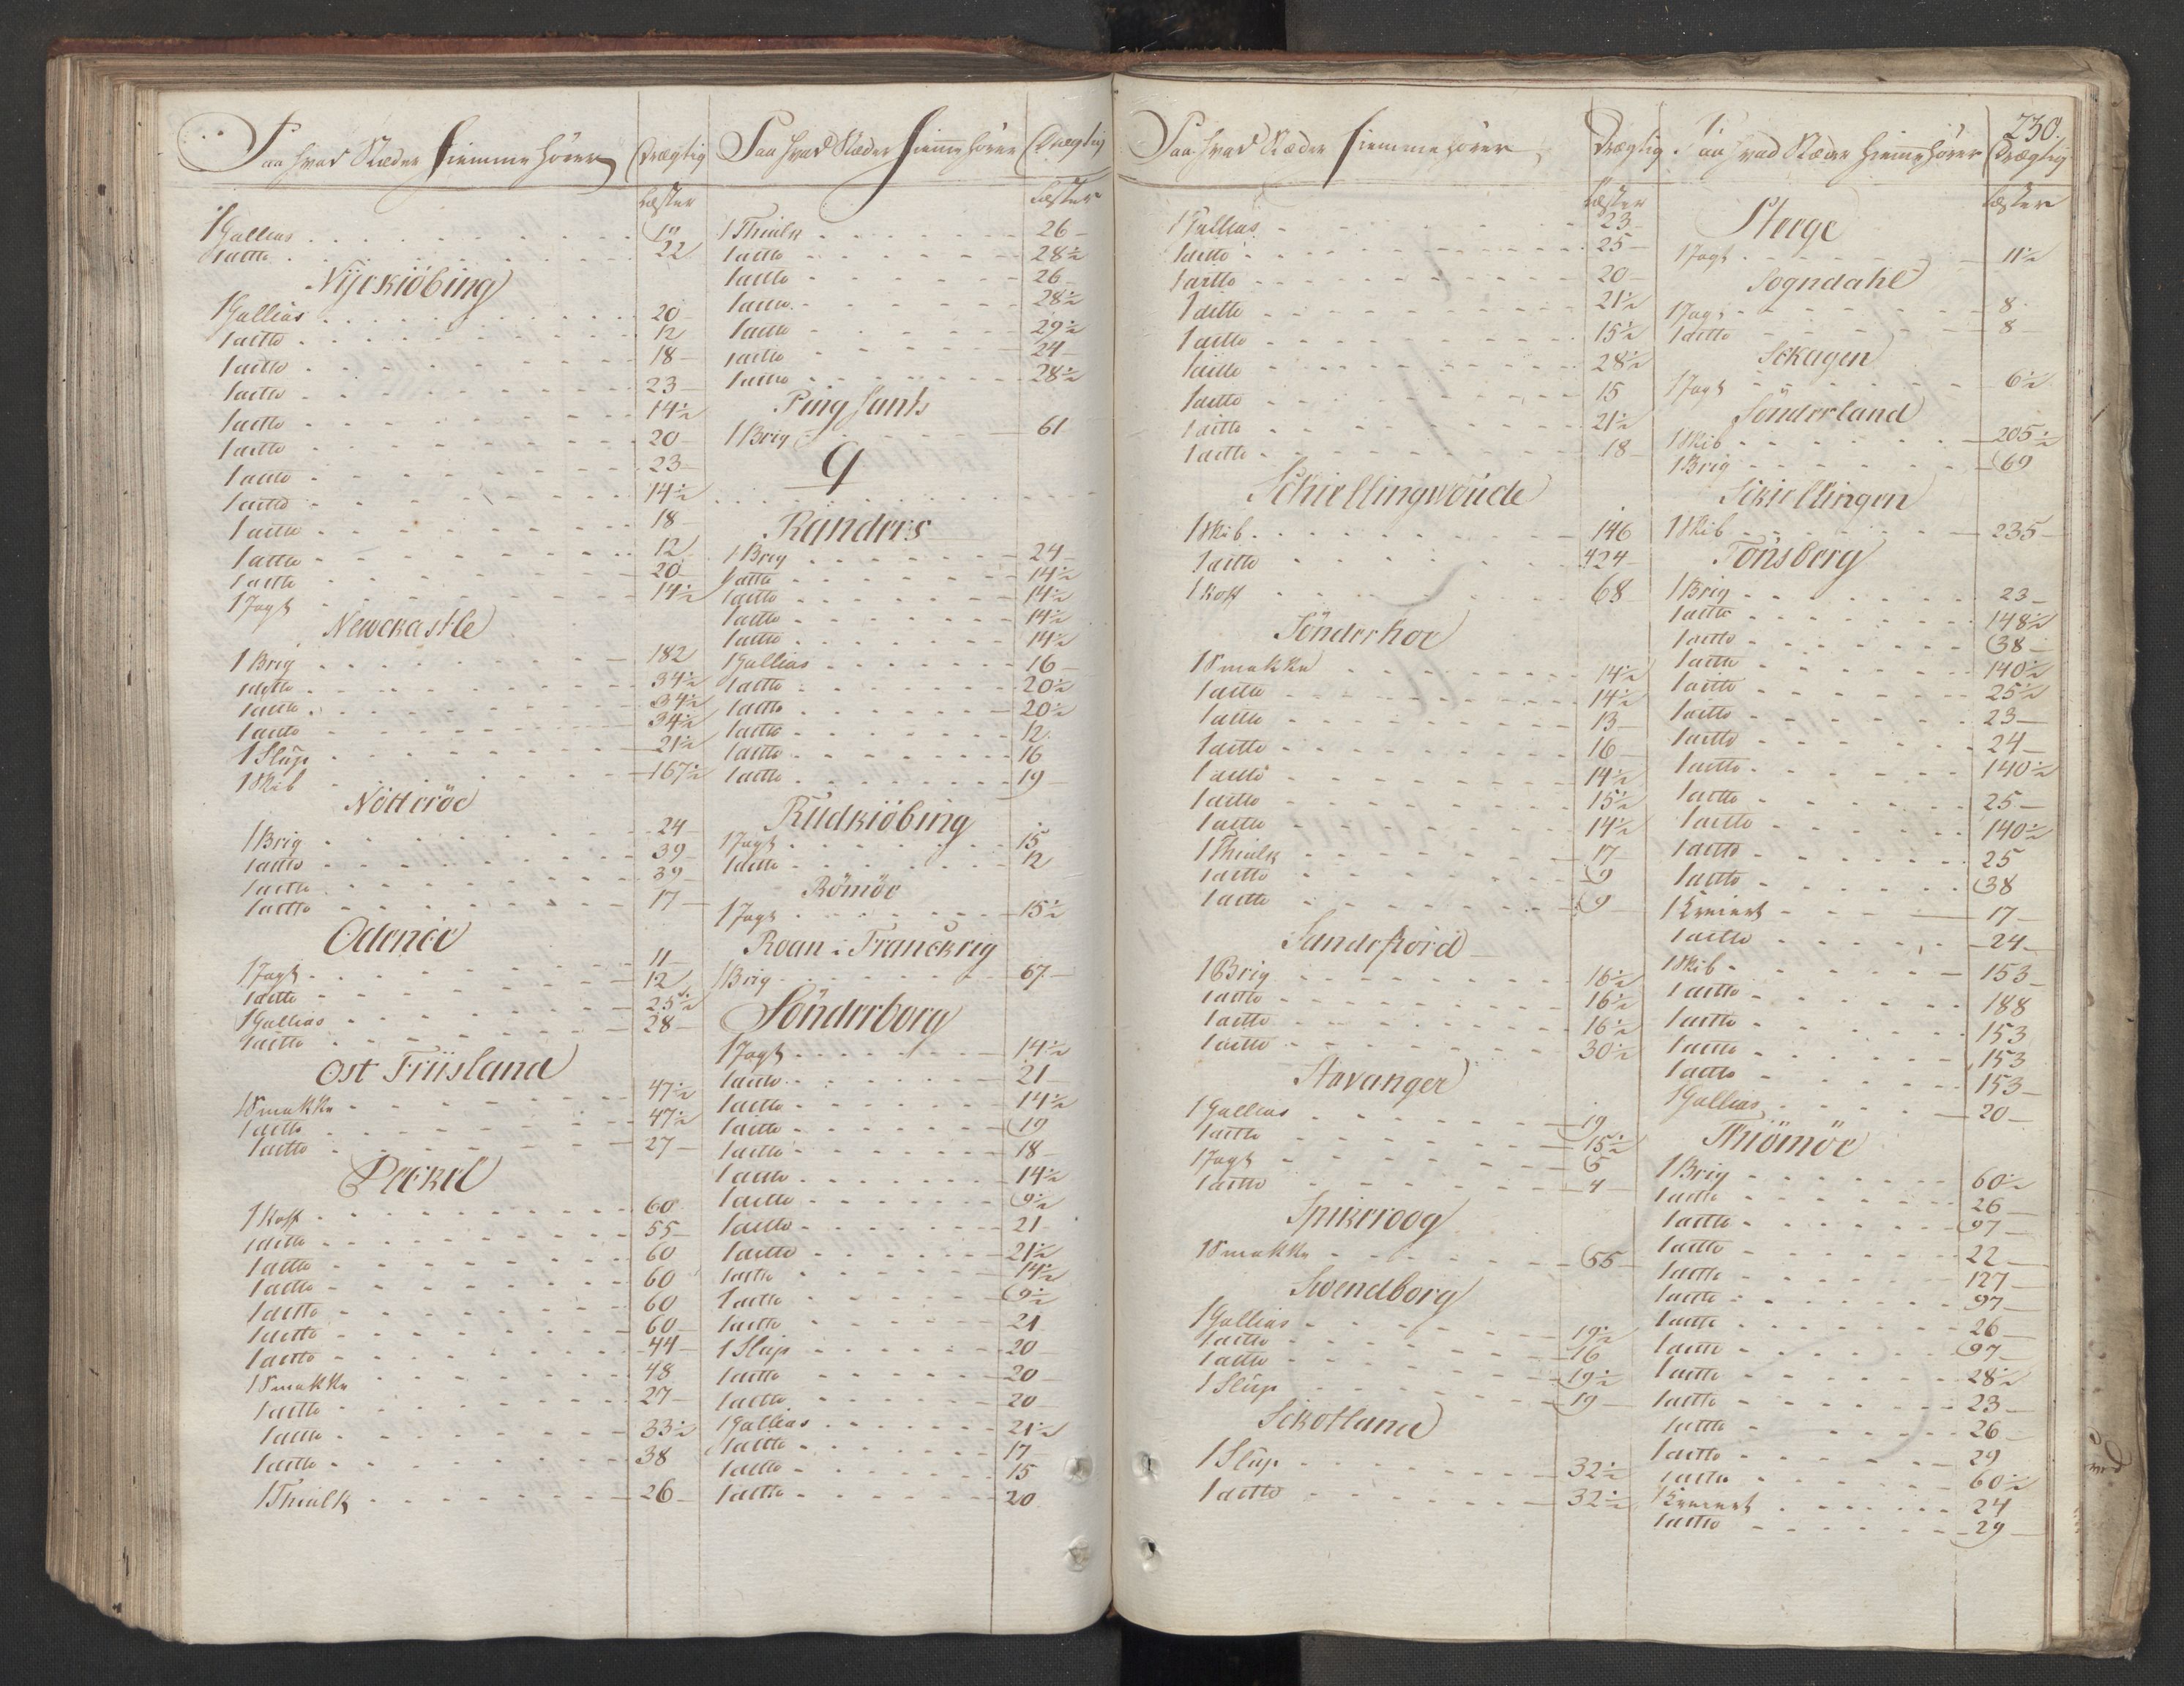 Paa hvad Stæder hiemmehører Drægtig
Læster
1 Gallias 19
1 ditto 22
Nÿekiöbing
1 Gallias 20
1 ditto 12
1 ditto 18
1 ditto 23
1 ditto 14½
1 ditto 20
1 ditto 23
1 ditto 14½
1 ditto 18
1 ditto 12
1 ditto 20
1 Jagt 14½
Newckastle
1 Brig 182
1 ditto 34½
1 ditto 34½
1 ditto 34½
1 Slup 21½
1 Skib 167½
Nötteröe
1 Brig 24
1 ditto 39
1 ditto 39
1 ditto 17
Odense
1 Jagt 11
1 ditto 12
1 Gallias 25½
1 ditto 28
Ost Friisland
1 Smakke 47½
1 ditto 47½
1 ditto 27
Peckel
1 Koff 60
1 ditto 55
1 ditto 60
1 ditto 60
1 ditto 60
1 ditto 60
1 ditto 44
1 Smakke 48
1 ditto 27
1 ditto 33½
1 ditto 38
1 Thialk 26
Paa hvad Stæder hiemmehører Drægtig
Læster
1 Thialk 26
1 ditto 28½
1 ditto 26
1 ditto 28½
1 ditto 29½
1 ditto 24
1 ditto 28½
1 Brig 61
Q
Randers
1 Brig 24
1 ditto 14½
1 ditto 14½
1 ditto 14½
1 ditto 14½
1 Gallias 16
1 ditto 20½
1 ditto 20½
1 ditto 12
1 ditto 16
1 ditto 19
Rudkiöbing
1 Jagt 15
1 ditto 12
Römöe
1 Jagt 15½
Roan i Franckrig
1 Brig 67
Sönderborg
1 Jagt 14½
1 ditto 21
1 ditto 14½
1 ditto 19
1 ditto 18
1 ditto 14½
1 ditto 9½
1 ditto 21
1 ditto 21½
1 ditto 14½
1 ditto 9½
1 ditto 21
1 Slup 20
1 ditto 20
1 ditto 20
1 Gallias 21½
1 ditto 17
1 ditto 15
1 ditto 20
Paa hvad Stæder hiemmehører Drægtig
Læster
1 Gallias 23
1 ditto 25
1 ditto 20
1 ditto 21½
1 ditto 15½
1 ditto 28½
1 ditto 15
1 ditto 21½
1 ditto 18
Schiellingwoude
1 Skib 146
1 ditto 124
1 Koff 68
Sönderhoe
1 Smakke 14½
1 ditto 14½
1 ditto 13
1 ditto 16
1 ditto 14½
1 ditto 15½
1 ditto 14½
1 Thialk 17
1 ditto 9
1 ditto 9
Sandefiord
1 Brig 16½
1 ditto 16½
1 ditto 16½
1 ditto 30½
Stavanger
1 Gallias 19
1 ditto 15½
1 Jagt 5
1 ditto 4
Spikeroog
1 Smakke 55
Svendborg
1 Gallias 19½
1 ditto 16
1 ditto 19½
1 Slup 19
Sckotland
1 Slup 32½
1 ditto 32½
230.
Paa hvad Stæder hiemmehører Drægtig
Læster
Storge
1 Jagt 11½
Sogndahl
1 Jagt 8
1 ditto 8
Sckagen
1 Jagt 6½
Sönderland
1 Skib 205½
1 Brig 69
Sckiellingen
1 Skib 235
Tönsberg
1 Brig 23
1 ditto 148½
1 ditto 38
1 ditto 140½
1 ditto 25½
1 ditto 23
1 ditto 24
1 ditto 140½
1 ditto 25
1 ditto 140½
1 ditto 25
1 ditto 38
1 Kreiert 17
1 ditto 24
1 Skib 153
1 ditto 188
1 ditto 153
1 ditto 153
1 ditto 153
1 Gallias 20
Thiömöe
1 Brig 60½
1 ditto 26
1 ditto 97
1 ditto 22
1 ditto 127
1 ditto 97
1 ditto 26
1 ditto 97
1 ditto 28½
1 ditto 23
1 ditto 26
1 ditto 29
1 ditto 60½
1 Kreiert 24
1 ditto 29